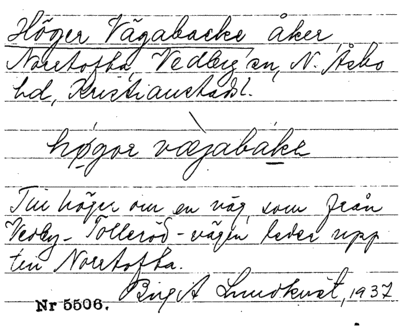 Höger Vägabacke åker,
Noretofta, Vedby sn, N. Åsbo
hd, Kristianstads l.
högor væjabake
Till höger om en väg, som från
Vedby-Tolleröd-vägen leder upp
till Noretofta.
Birgit Lundkvist, 1937
Nr 5506.